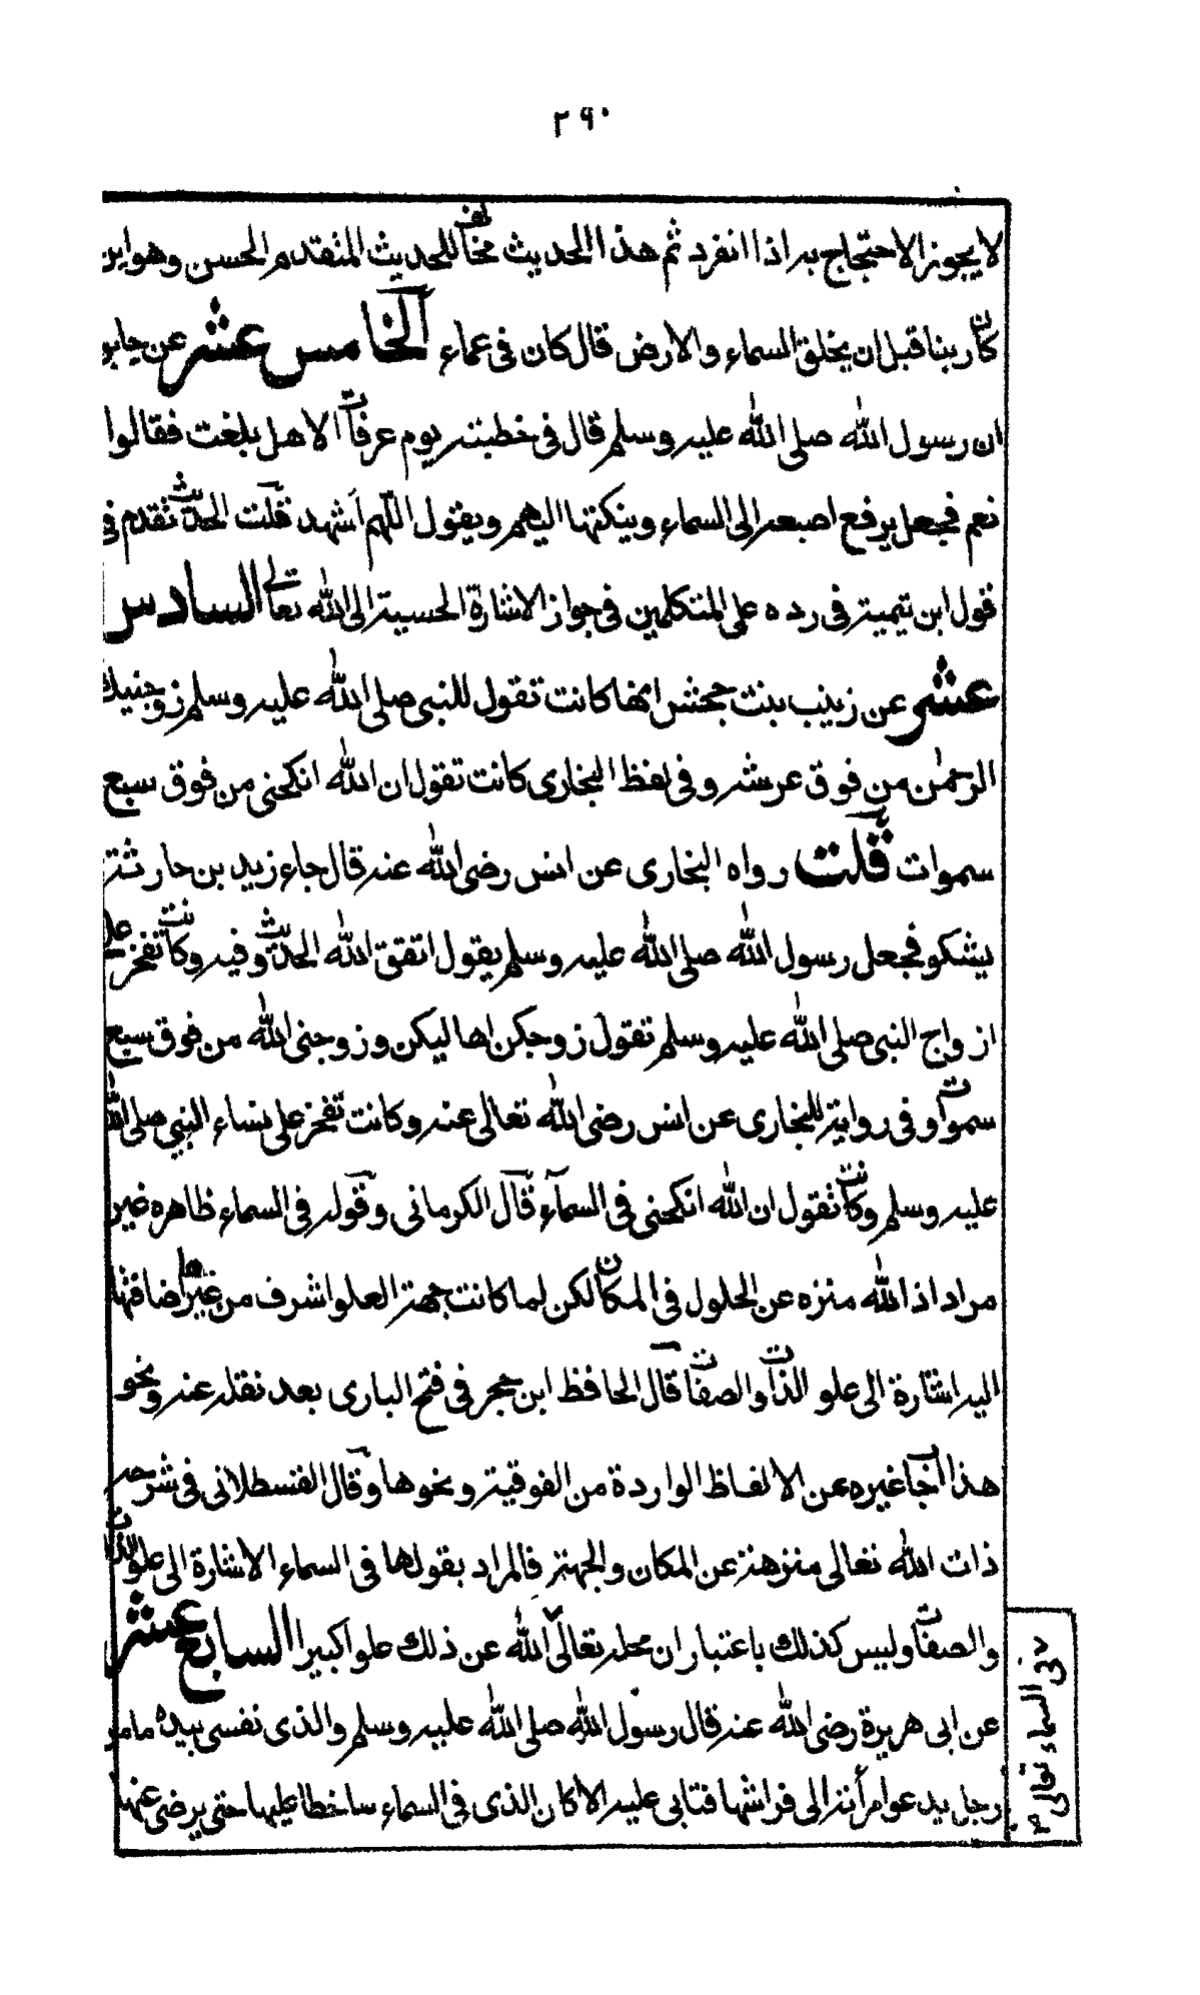 ٢٩٠
لا يجوز الاحتجاج به اذا انفرد ثم هذا الحديث مخالف للحديث المتقدم الحسن وهو اين
كان ربنا قبل ان يخلق السماء والارض قال كان فى عماء الخامس عشر عن جابر
ان رسول الله صلى الله عليه وسلم قال فى خطبته يوم عرفات الا هل بلغت فقالوا
نعم فجعل يرفع اصبعه الى السماء وينكتها اليهم ويقول اللهم اشهد قلت الحديث تقدم فى
قول ابن تيمية فى رده على المتكلمين فى جواز الاشارة الحسية الى الله تعالى السادس
عشر عن زينب بنت جحش انها كانت تقول للنبى صلى الله عليه وسلم زوجنيك
الرحمن من فوق عرشه وفى لفظ البخارى كانت تقول ان الله انكحنى من فوق سبع
سموات قلت رواه البخارى عن انس رضى الله عنه قال جاء زيد بن حارثة
يشكو فجعل رسول الله صلى الله عليه وسلم يقول اتق الله الحديث وفيه وكانت تفخر على
ازواج النبى صلى الله عليه وسلم تقول زوجكن اهاليكن وزوجنى الله من فوق سبع
سموات وفى رواية للبخارى عن انس رضى الله تعالى عنه وكانت تفخر على نساء النبى صلى الله
عليه وسلم وكانت تقول ان الله انكحنى فى السماء قال الكرمانى وقوله فى السماء ظاهره غير
مراد اذ الله منزه عن الحلول فى المكان لكن لما كانت جهة العلو اشرف من غيرها اضافتها
اليه اشارة الى علو الذات والصفات قال الحافظ ابن حجر فى فتح البارى بعد نقله عنه ونحو
هذا اجاب غيره عن الالفاظ الواردة من الفوقية ونحوها وقال القسطلانى فى شرحه
ذات الله تعالى منزهة عن المكان والجهة فالمراد بقولها فى السماء الاشارة الى علو الذات
والصفات وليس كذلك باعتبار ان محله تعالى الله عن ذلك علوا كبيرا السابع عشر
عن ابى هريرة رضى الله عنه قال رسول الله صلى الله عليه وسلم والذى نفسى بيده ما من
رجل يدعو امرأته الى فراشها فتابى عليه الا كان الذى فى السماء ساخطا عليها حتى يرضى عنها
فى السماء تعالى